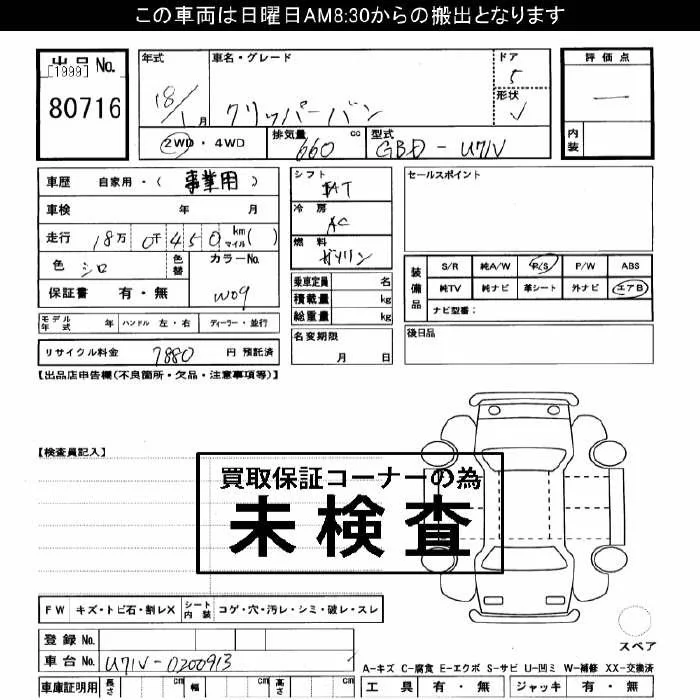 この車両は日曜日AM8:30からの搬出となります
出品No.
[1999]
80716
年式
18/1月
車名・グレード
クリッパーバン
ドア
5
形状
✓
評価点
—
内装
②WD・4WD
排気量
660
cc
型式
GBD-U71V
車歴 自家用・(事業用)
車検 年 月
走行 18万 0千 4 5 0 km マイル( )
色 シロ
色替
カラーNo.
W09
保証書 有・無
シフト
AT
冷房
AC
燃料
ガソリン
乗車定員 名
積載量 kg
総重量 kg
セールスポイント
装備品
S/R 純A/W P/S P/W ABS
純TV 純ナビ 革シート 外ナビ エアB
ナビ型番:
モデル年式 年 ハンドル 左・右 ディーラー・並行
リサイクル料金 7880 円 預託済
名変期限
月 日
後日品
【出品店申告欄(不良箇所・欠品・注意事項等)】
【検査員記入】
買取保証コーナーの為
未検査
FW キズ・トビ石・割レX シート内装 コゲ・穴・汚レ・シミ・破レ・スレ
登録No.
車台No. U71V-0200913
車庫証明用 長さ cm 幅 cm 高さ cm
スペア
A-キズ C-腐食 E-エクボ S-サビ U-凹ミ W-補修 XX-交換済
工具 有・無 ジャッキ 有・無